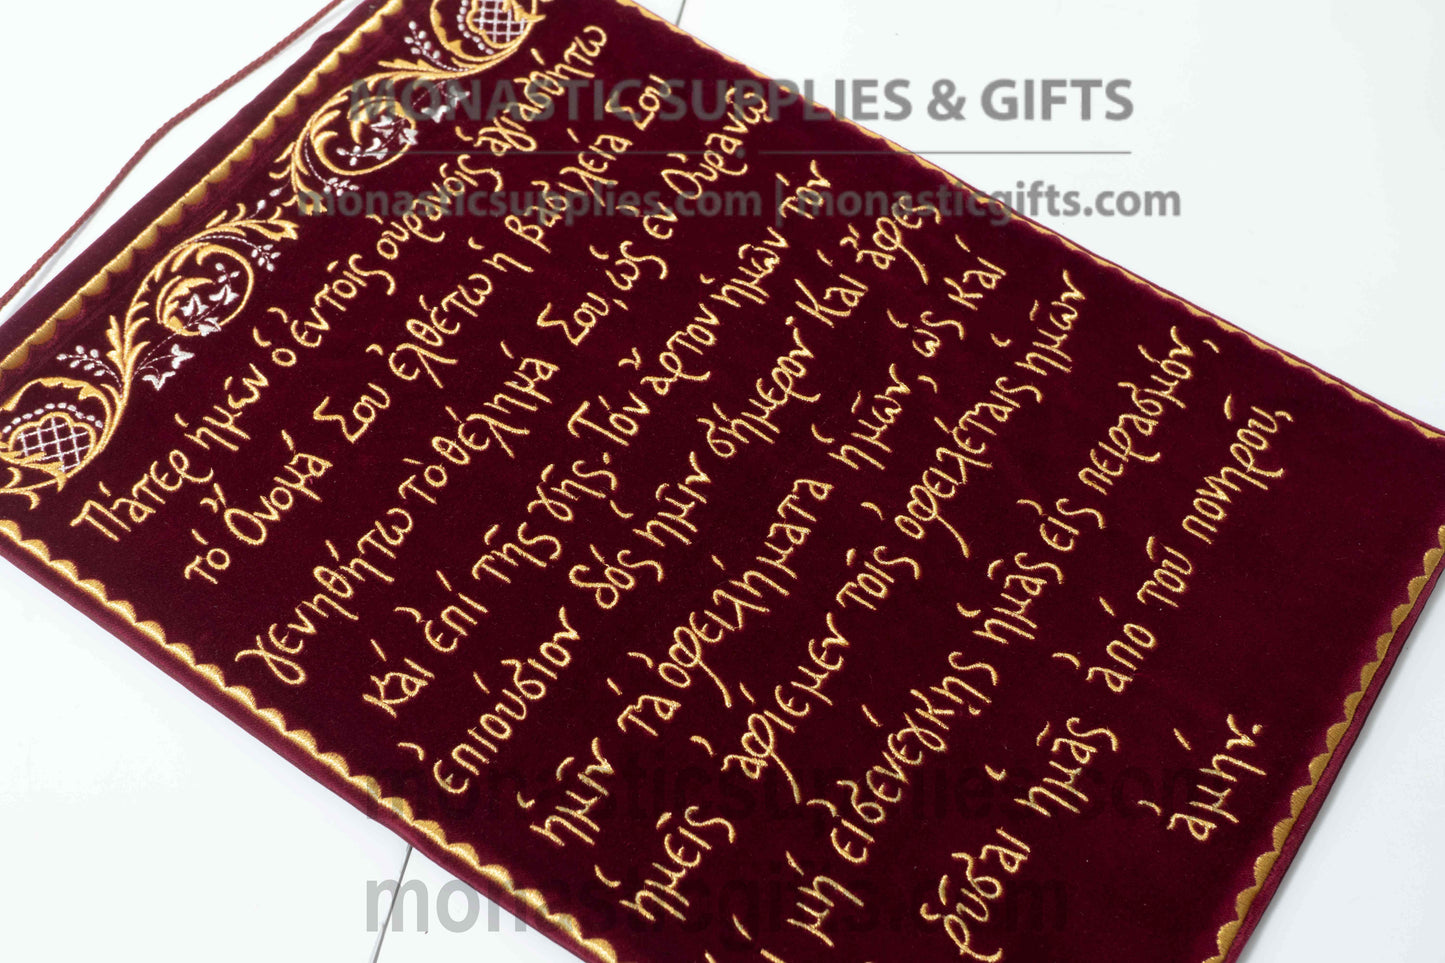 MONASTIC SUPPLIES & GIFTS
monasticsupplies.com | monasticgifts.com
Πάτερ ἡμῶν ὁ ἐν τοῖς οὐρανοῖς ἁγιασθήτω
τό Ὄνομά Σου ἐλθέτω ἡ βασιλεία Σου
γενηθήτω τὸ θέλημά Σου, ὡς ἐν Οὐρανῷ
καί ἐπί τῆς γῆς. Τόν ἄρτον ἡμῶν τόν
ἐπιούσιον δός ἡμῖν σήμερον· Καί ἄφες
ἡμῖν τά ὀφειλήματα ἡμῶν, ὡς καί
ἡμεῖς ἀφίεμεν τοῖς ὀφειλέταις ἡμῶν
μή εἰσενέγκῃς ἡμᾶς εἰς πειρασμόν,
ῥῦσαι ἡμᾶς ἀπό τοῦ πονηροῦ,
ἀμήν.
monasticsupplies.com
monasticgifts.com